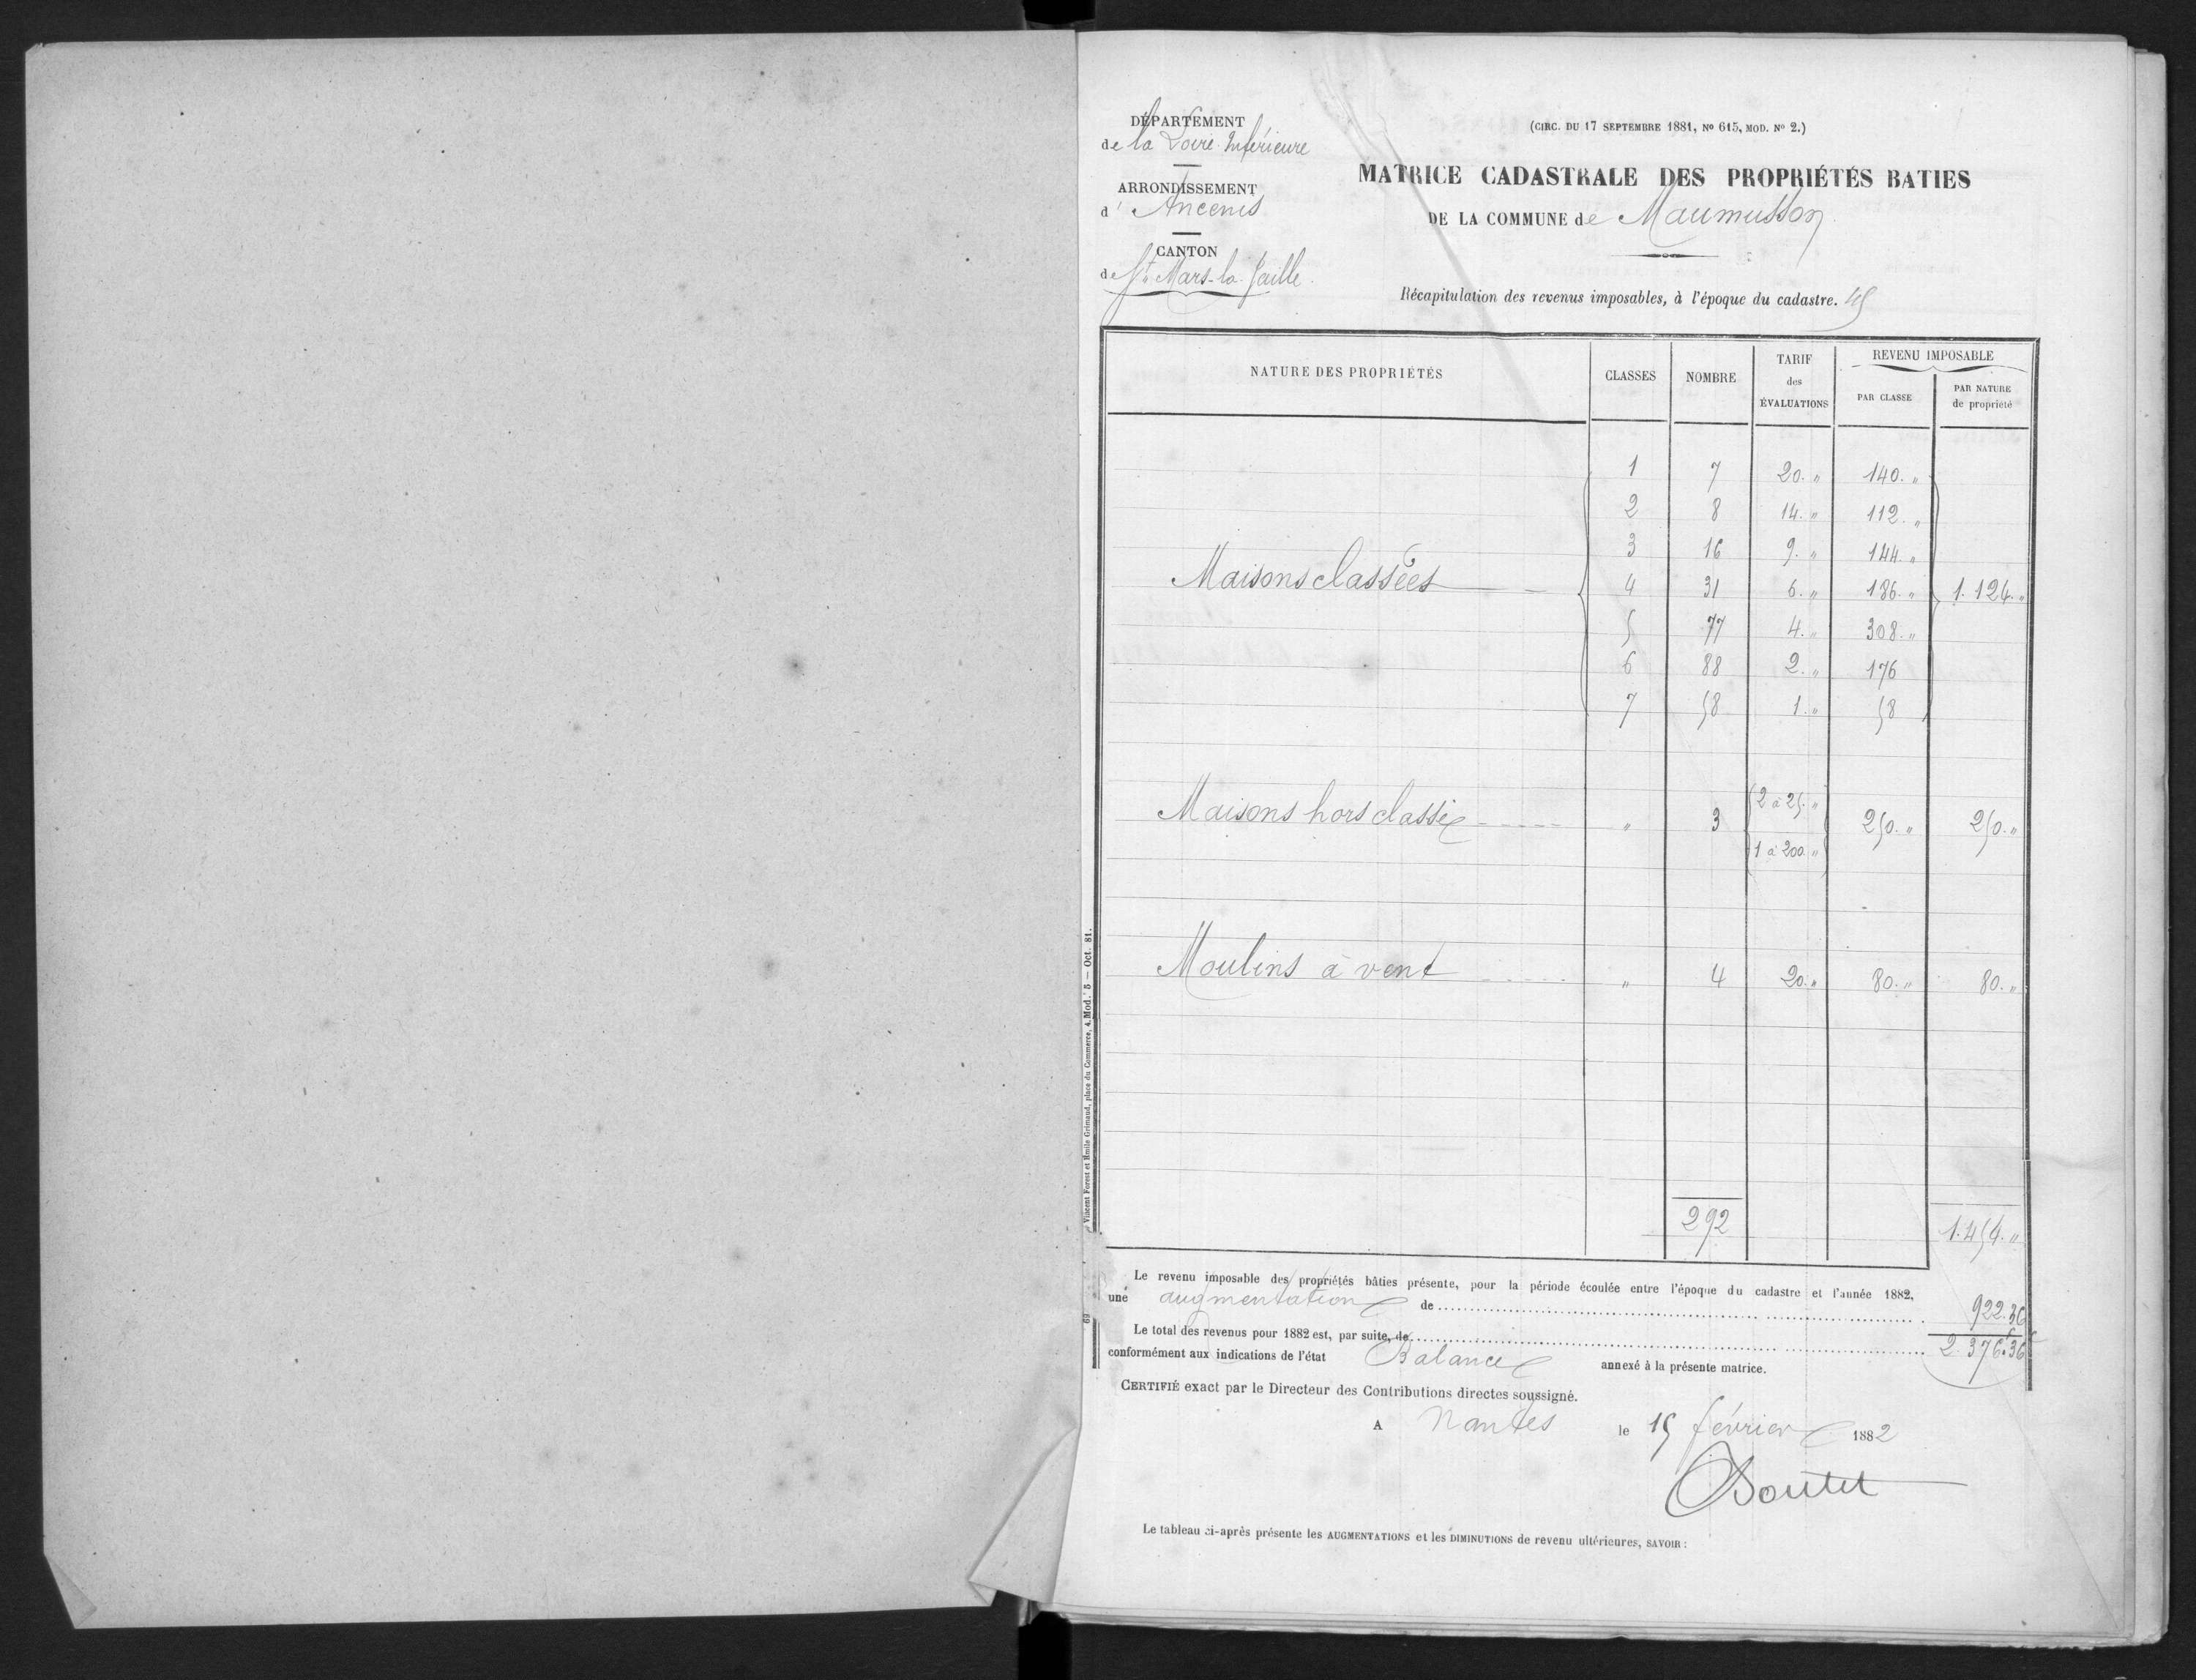 DÉPARTEMENT
de la Loire Inférieure
ARRONDISSEMENT
d' Ancenis
CANTON
de St Mars-la-Jaille.
(CIRC. DU 17 SEPTEMBRE 1881, No 615, MOD. No 2.)
MATRICE CADASTRALE DES PROPRIÉTÉS BATIES
DE LA COMMUNE de Maumusson
Récapitulation des revenus imposables, à l'époque du cadastre.
NATURE DES PROPRIÉTÉS CLASSES NOMBRE TARIF des ÉVALUATIONS REVENU IMPOSABLE
PAR CLASSE PAR NATURE de propriété
1 7 20. " 140. "
2 8 14. " 112. "
3 16 9. " 144. "
Maisons classées 4 31 6. " 186. " 1.124. "
5 77 4. " 308. "
6 88 2. " 176
7 58 1. " 58
2 à 25. "
Maisons hors classe " 3 250. " 250. "
1 à 200. "
Moulins à vent " 4 20. " 80. " 80. "
292 1.454. "
Le revenu imposable des propriétés bâties présente, pour la période écoulée entre l'époque du cadastre et l'année 1882,
une augmentation de 922.36
Le total des revenus pour 1882 est, par suite, de 2.376f.36c
conformément aux indications de l'état Balance annexé à la présente matrice.
CERTIFIÉ exact par le Directeur des Contributions directes soussigné.
A Nantes le 15 février 1882
Boutet
Le tableau ci-après présente les AUGMENTATIONS et les DIMINUTIONS de revenu ultérieures, SAVOIR :
Vincent Forest et Emile Grimaud, place du Commerce, 4. Mod. 5 — Oct. 81.
69